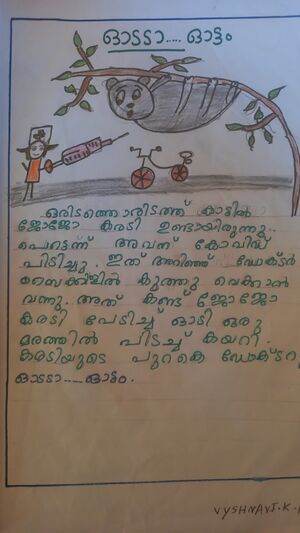 ഓടടാ..... ഓട്ടം
ഒരിടത്തൊരിടത്ത് കാട്ടിൽ
ജോജോ കരടി ഉണ്ടായിരുന്നു..
പെട്ടെന്ന് അവന് കോവിഡ്
പിടിച്ചു. ഇത് അറിഞ്ഞ് ഡോക്ടർ
സൈക്കിളിൽ കുത്തു വെക്കാൻ
വന്നു. അത് കണ്ട് ജോജോ
കരടി പേടിച്ച് ഓടി ഒരു
മരത്തിൽ പിടച്ച് കയറി.
കരടിയുടെ പുറകെ ഡോക്ടറു
ഓടടാ..... ഓട്ടം.
VYSHNAVI.K.